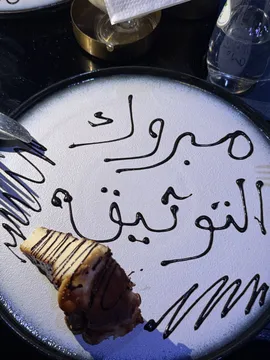 مبروك
التوثيق